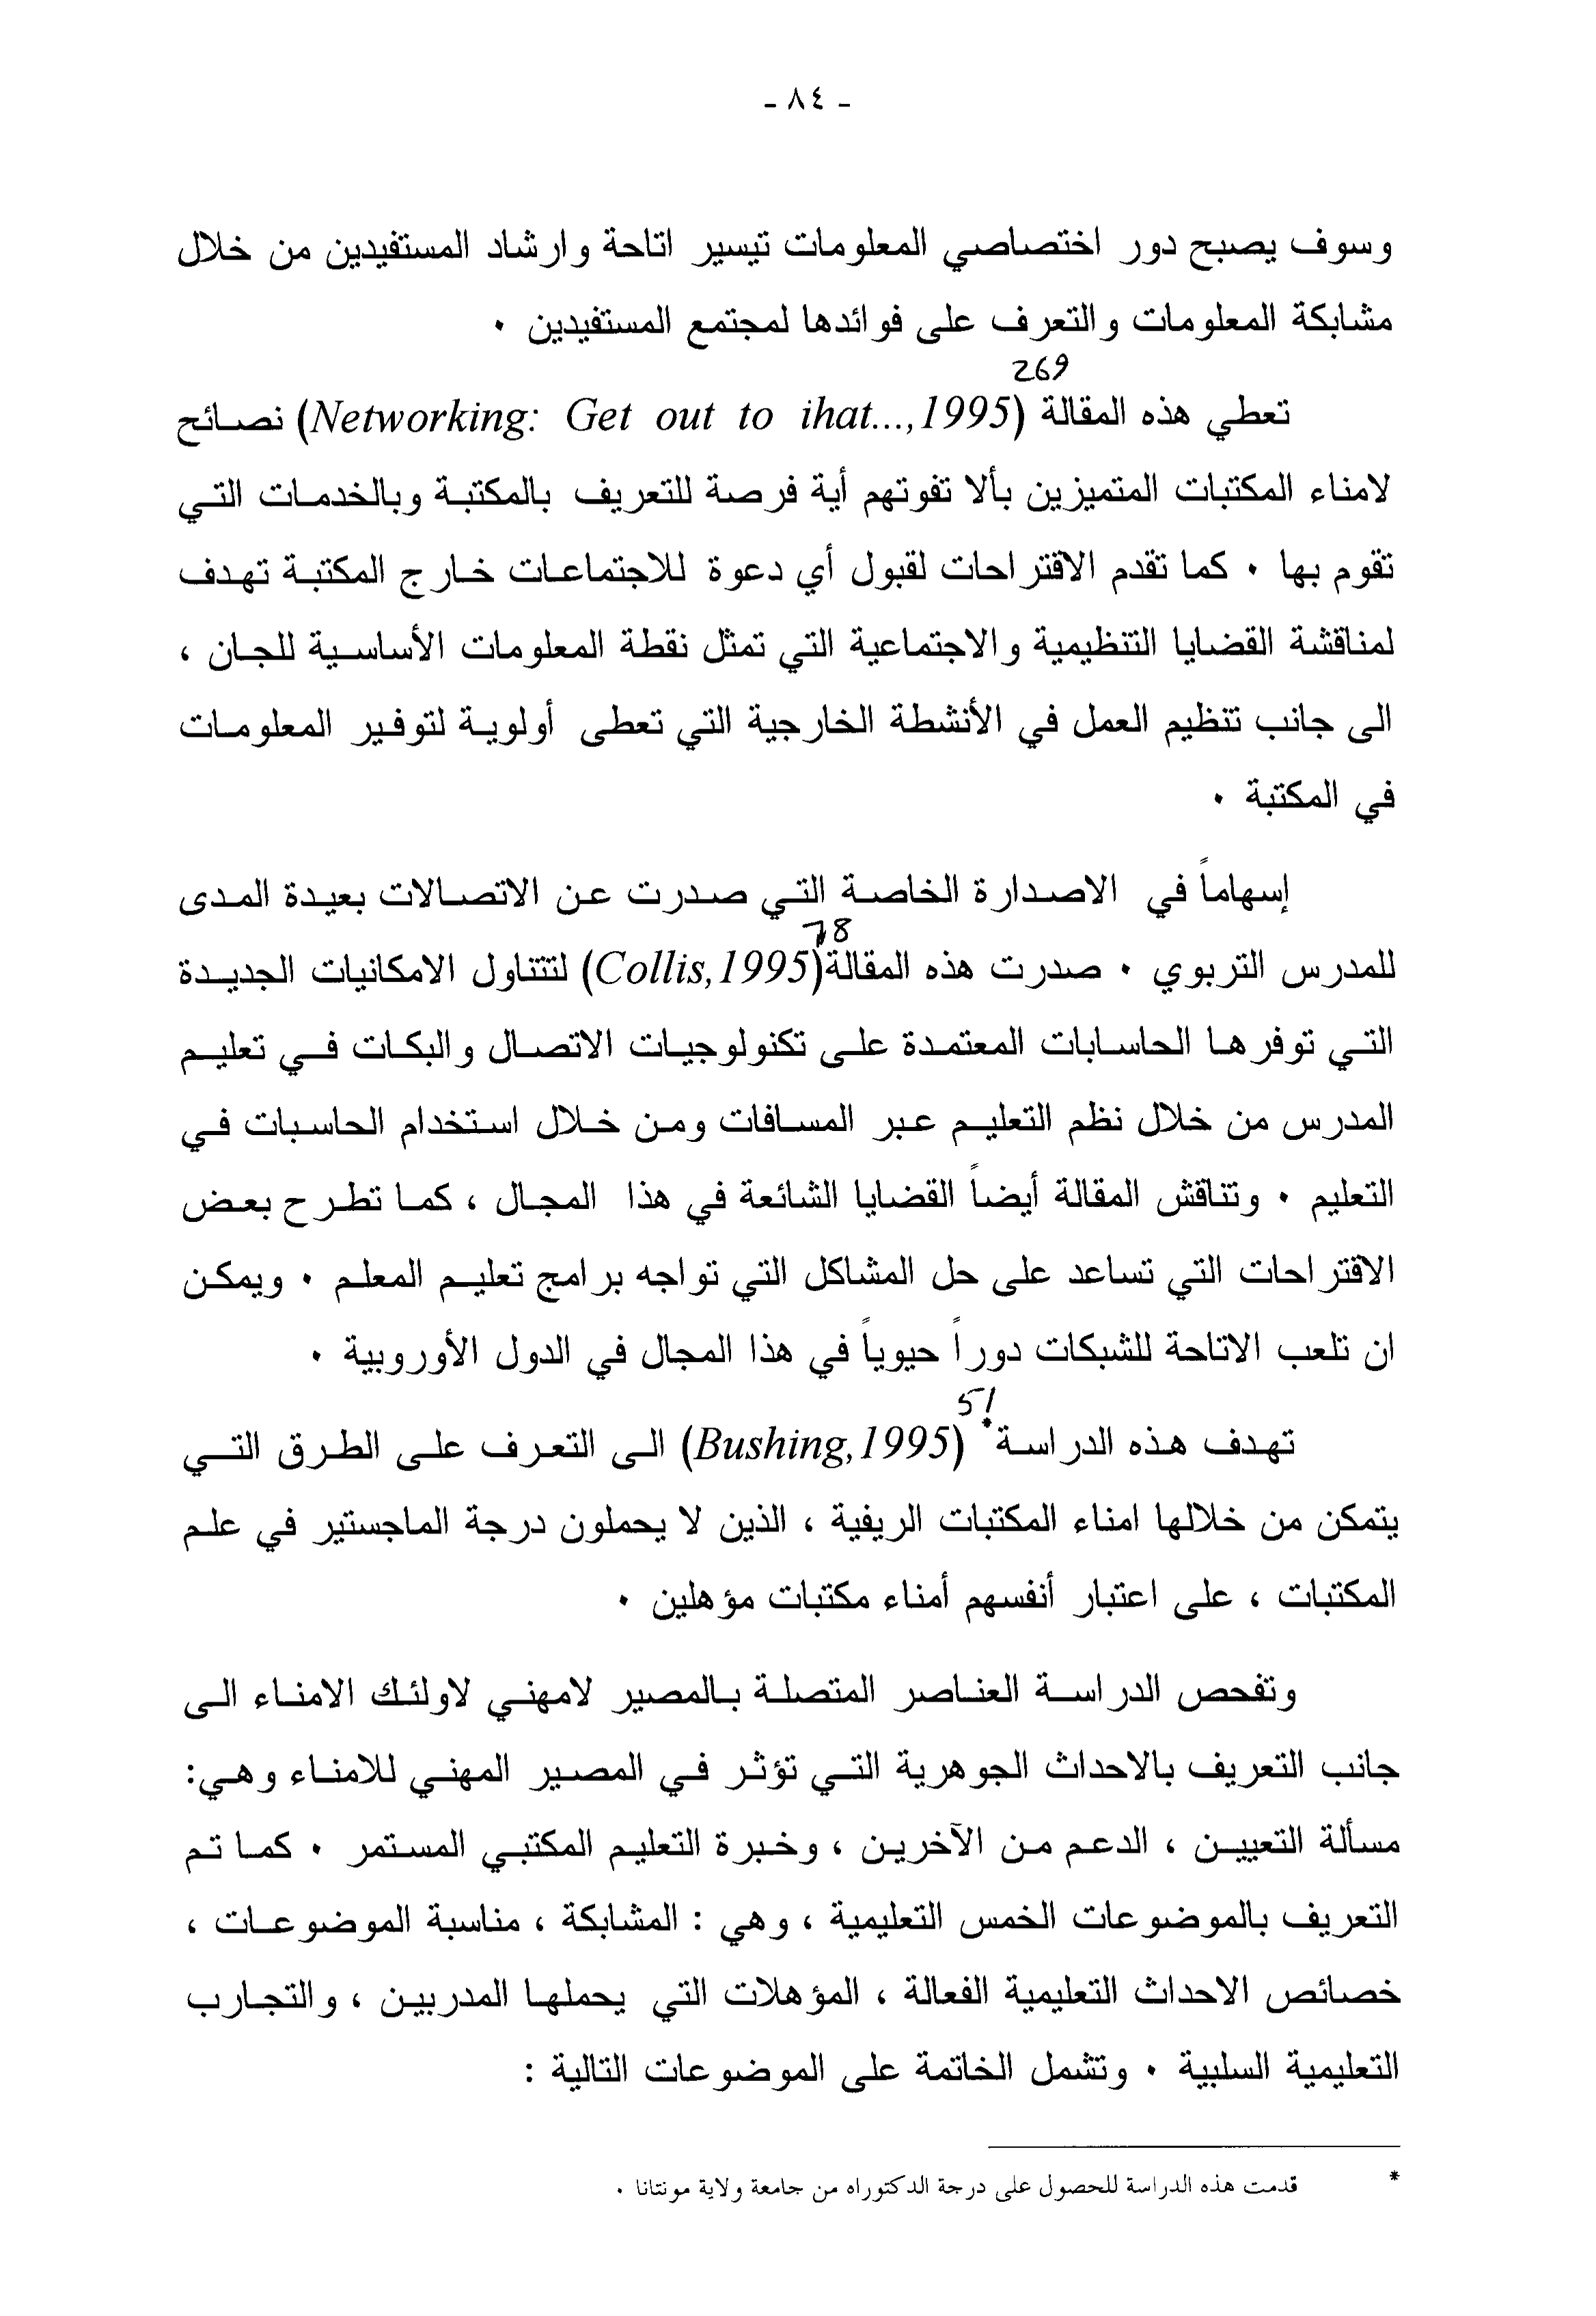 - ٨٤ -
وسوف يصبح دور اختصاصي المعلومات تيسير اتاحة وارشاد المستفيدين من خلال
مشابكة المعلومات والتعرف على فوائدها لمجتمع المستفيدين ٠
269
تعطي هذه المقالة (Networking: Get out to ihat...,1995) نصائح
لامناء المكتبات المتميزين بألا تفوتهم أية فرصة للتعريف بالمكتبة وبالخدمات التي
تقوم بها ٠ كما تقدم الاقتراحات لقبول أي دعوة للاجتماعات خارج المكتبة تهدف
لمناقشة القضايا التنظيمية والاجتماعية التي تمثل نقطة المعلومات الأساسية للجان ،
الى جانب تنظيم العمل في الأنشطة الخارجية التي تعطى أولوية لتوفير المعلومات
في المكتبة ٠
إسهاماً في الاصدارة الخاصة التي صدرت عن الاتصالات بعيدة المدى
78
للمدرس التربوي ٠ صدرت هذه المقالة(Collis,1995) لتتناول الامكانيات الجديدة
التي توفرها الحاسابات المعتمدة على تكنولوجيات الاتصال والبكات في تعليم
المدرس من خلال نظم التعليم عبر المسافات ومن خلال استخدام الحاسبات في
التعليم ٠ وتناقش المقالة أيضاً القضايا الشائعة في هذا المجال ، كما تطرح بعض
الاقتراحات التي تساعد على حل المشاكل التي تواجه برامج تعليم المعلم ٠ ويمكن
ان تلعب الاتاحة للشبكات دوراً حيوياً في هذا المجال في الدول الأوروبية ٠
51
تهدف هذه الدراسة* (Bushing,1995) الى التعرف على الطرق التي
يتمكن من خلالها امناء المكتبات الريفية ، الذين لا يحملون درجة الماجستير في علم
المكتبات ، على اعتبار أنفسهم أمناء مكتبات مؤهلين ٠
وتفحص الدراسة العناصر المتصلة بالمصير لامهني لاولئك الامناء الى
جانب التعريف بالاحداث الجوهرية التي تؤثر في المصير المهني للامناء وهي:
مسألة التعيين ، الدعم من الآخرين ، وخبرة التعليم المكتبي المستمر ٠ كما تم
التعريف بالموضوعات الخمس التعليمية ، وهي : المشابكة ، مناسبة الموضوعات ،
خصائص الاحداث التعليمية الفعالة ، المؤهلات التي يحملها المدربين ، والتجارب
التعليمية السلبية ٠ وتشمل الخاتمة على الموضوعات التالية :
* قدمت هذه الدراسة للحصول على درجة الدكتوراه من جامعة ولاية مونتانا ٠